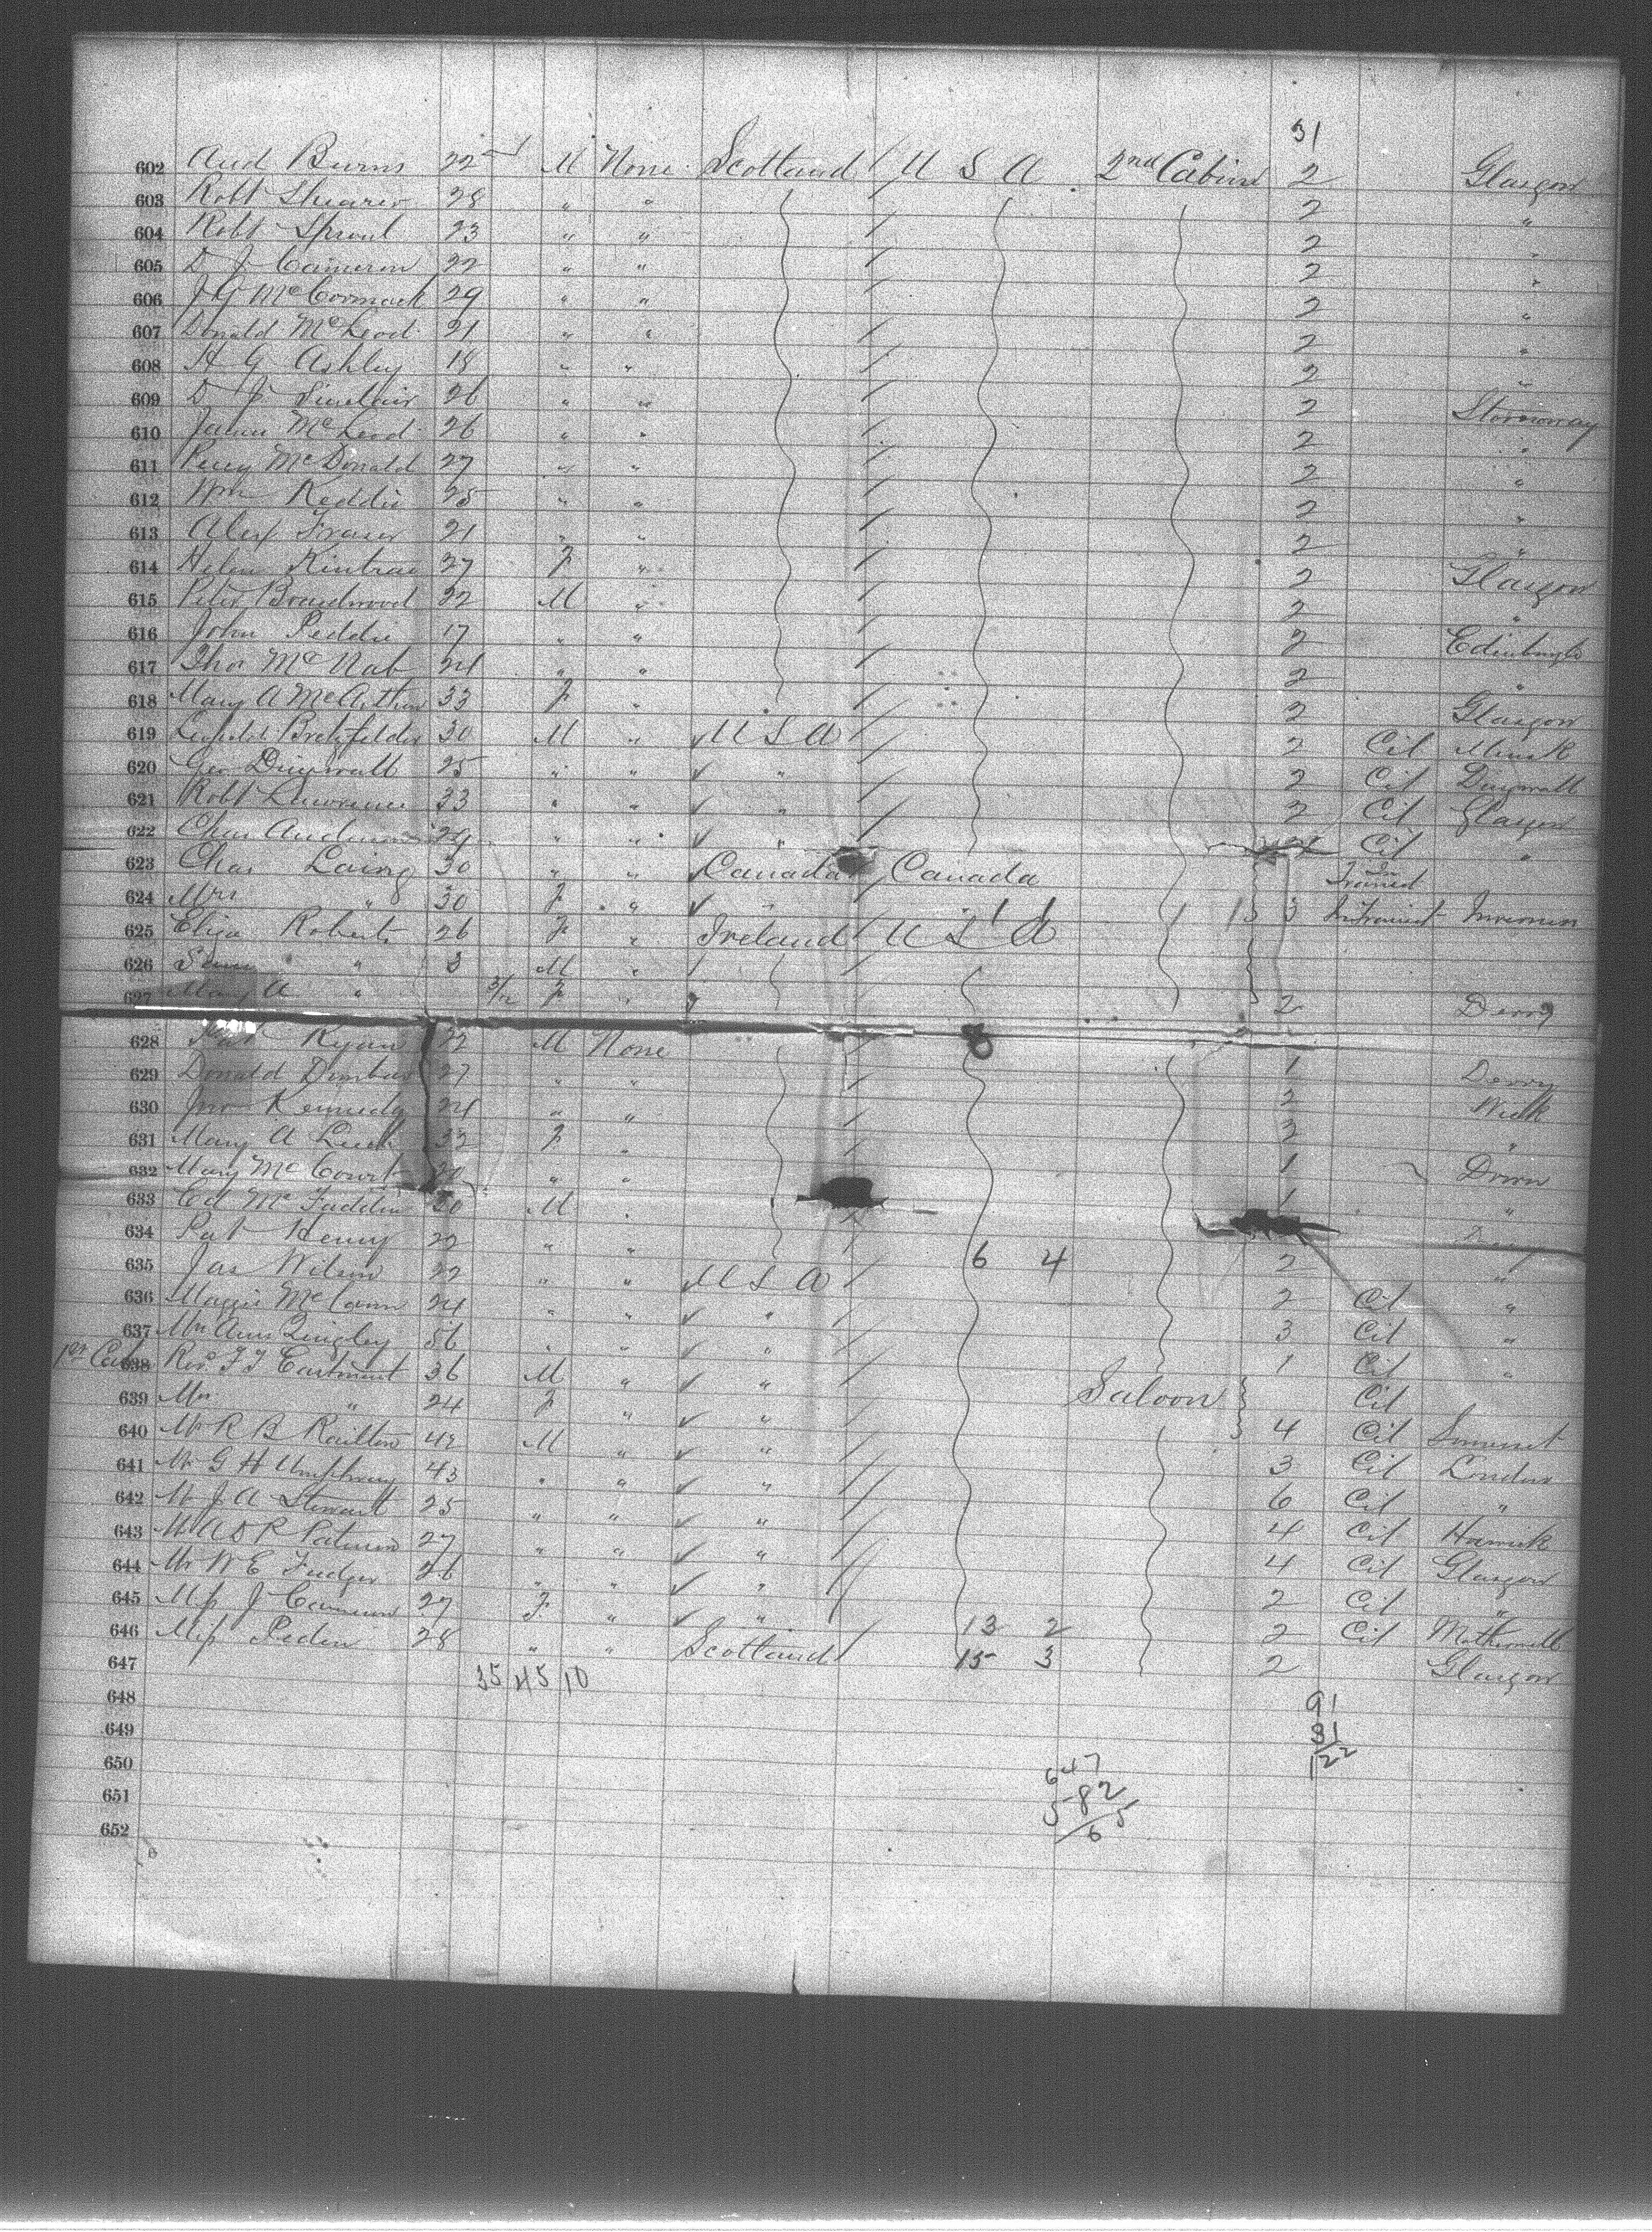 31
602 And Burns 22 M None Scotland / U S A 2nd Cabin 2 Glasgow
603 Robt Shearer 28 " " / 2 "
604 Robt Sproul 23 " " / 2 "
605 D J Cameron 22 " " / 2 "
606 J G McCormack 29 " " / 2 "
607 Donald McLeod 21 " " / 2 "
608 H G Ashley 18 " " / 2 "
609 D J Sinclair 26 " " / 2 Stornoway
610 McLeod 26 " " / 2 "
611 Percy McDonald 27 " " / 2 "
612 Wm Keddie 25 " " / 2 "
613 Alex Fraser 21 " " / 2 "
614 Helen 27 F " / 2 Glasgow
615 Peter Braidwood 32 M " / 2 "
616 John Peddie 17 " " / 2 Edinburgh
617 Thos McNab 24 " " / 2 "
618 Mary A McArthur 33 F " / 2 Glasgow
619 30 M " ✓ U S A / 2 Cit Minsk
620 Geo Dingwall 25 " " ✓ " / 2 Cit Dingwall
621 Robt Lawrence 33 " " ✓ " / 2 Cit Glasgow
622 Chas Anderson 29 " " ✓ " / Cit "
623 Chas Laing 30 " " ✓ Canada / Canada In Transit
624 Mrs " 30 F " ✓ " 3 In Transit Inverness
625 Eliza Roberts 26 F " Ireland / U S A
626 " 3 M " /
627 Mary A " 3/12 F " / 2 Derry
628 Ryan 22 M None / 1 Derry
629 Donald Dunbar 27 " " / 2 Wick
630 Jno Kennedy 24 " " / 2 "
631 Mary A 32 F " / 1 Down
632 Mary McCourt 20 " " 1 "
633 McFadden 20 M "
634 Pat Henry 22 " " / 6 4 2 "
635 Jas Wilson 22 " " ✓ U S A / 2 Cit "
636 Maggie McCann 24 " " ✓ " 3 Cit "
637 Mrs Ann Quigley 56 " " ✓ " / 1 Cit "
1st Cab 638 Rev F J 36 M " ✓ " / Saloon Cit
639 Mrs " 24 F " ✓ " / 4 Cit Somerset
640 Mr R B Railton 42 M " ✓ " / 3 Cit London
641 Mr G H Umphrey 43 " " ✓ " / 6 Cit "
642 Mr J A Stewart 25 " " ✓ " / 4 Cit Hawick
643 Mr A D R Paterson 27 " " ✓ " / 4 Cit Glasgow
644 Mr W E Fudger 26 " " ✓ " / 2 Cit "
645 Miss J Cameron 27 F " ✓ " / 13 2 2 Cit Motherwell
646 Miss Peden 28 " " Scotland / 15 3 2 Glasgow
647 35 45 10
648 91
649 31
650 647 122
651 582
652 65